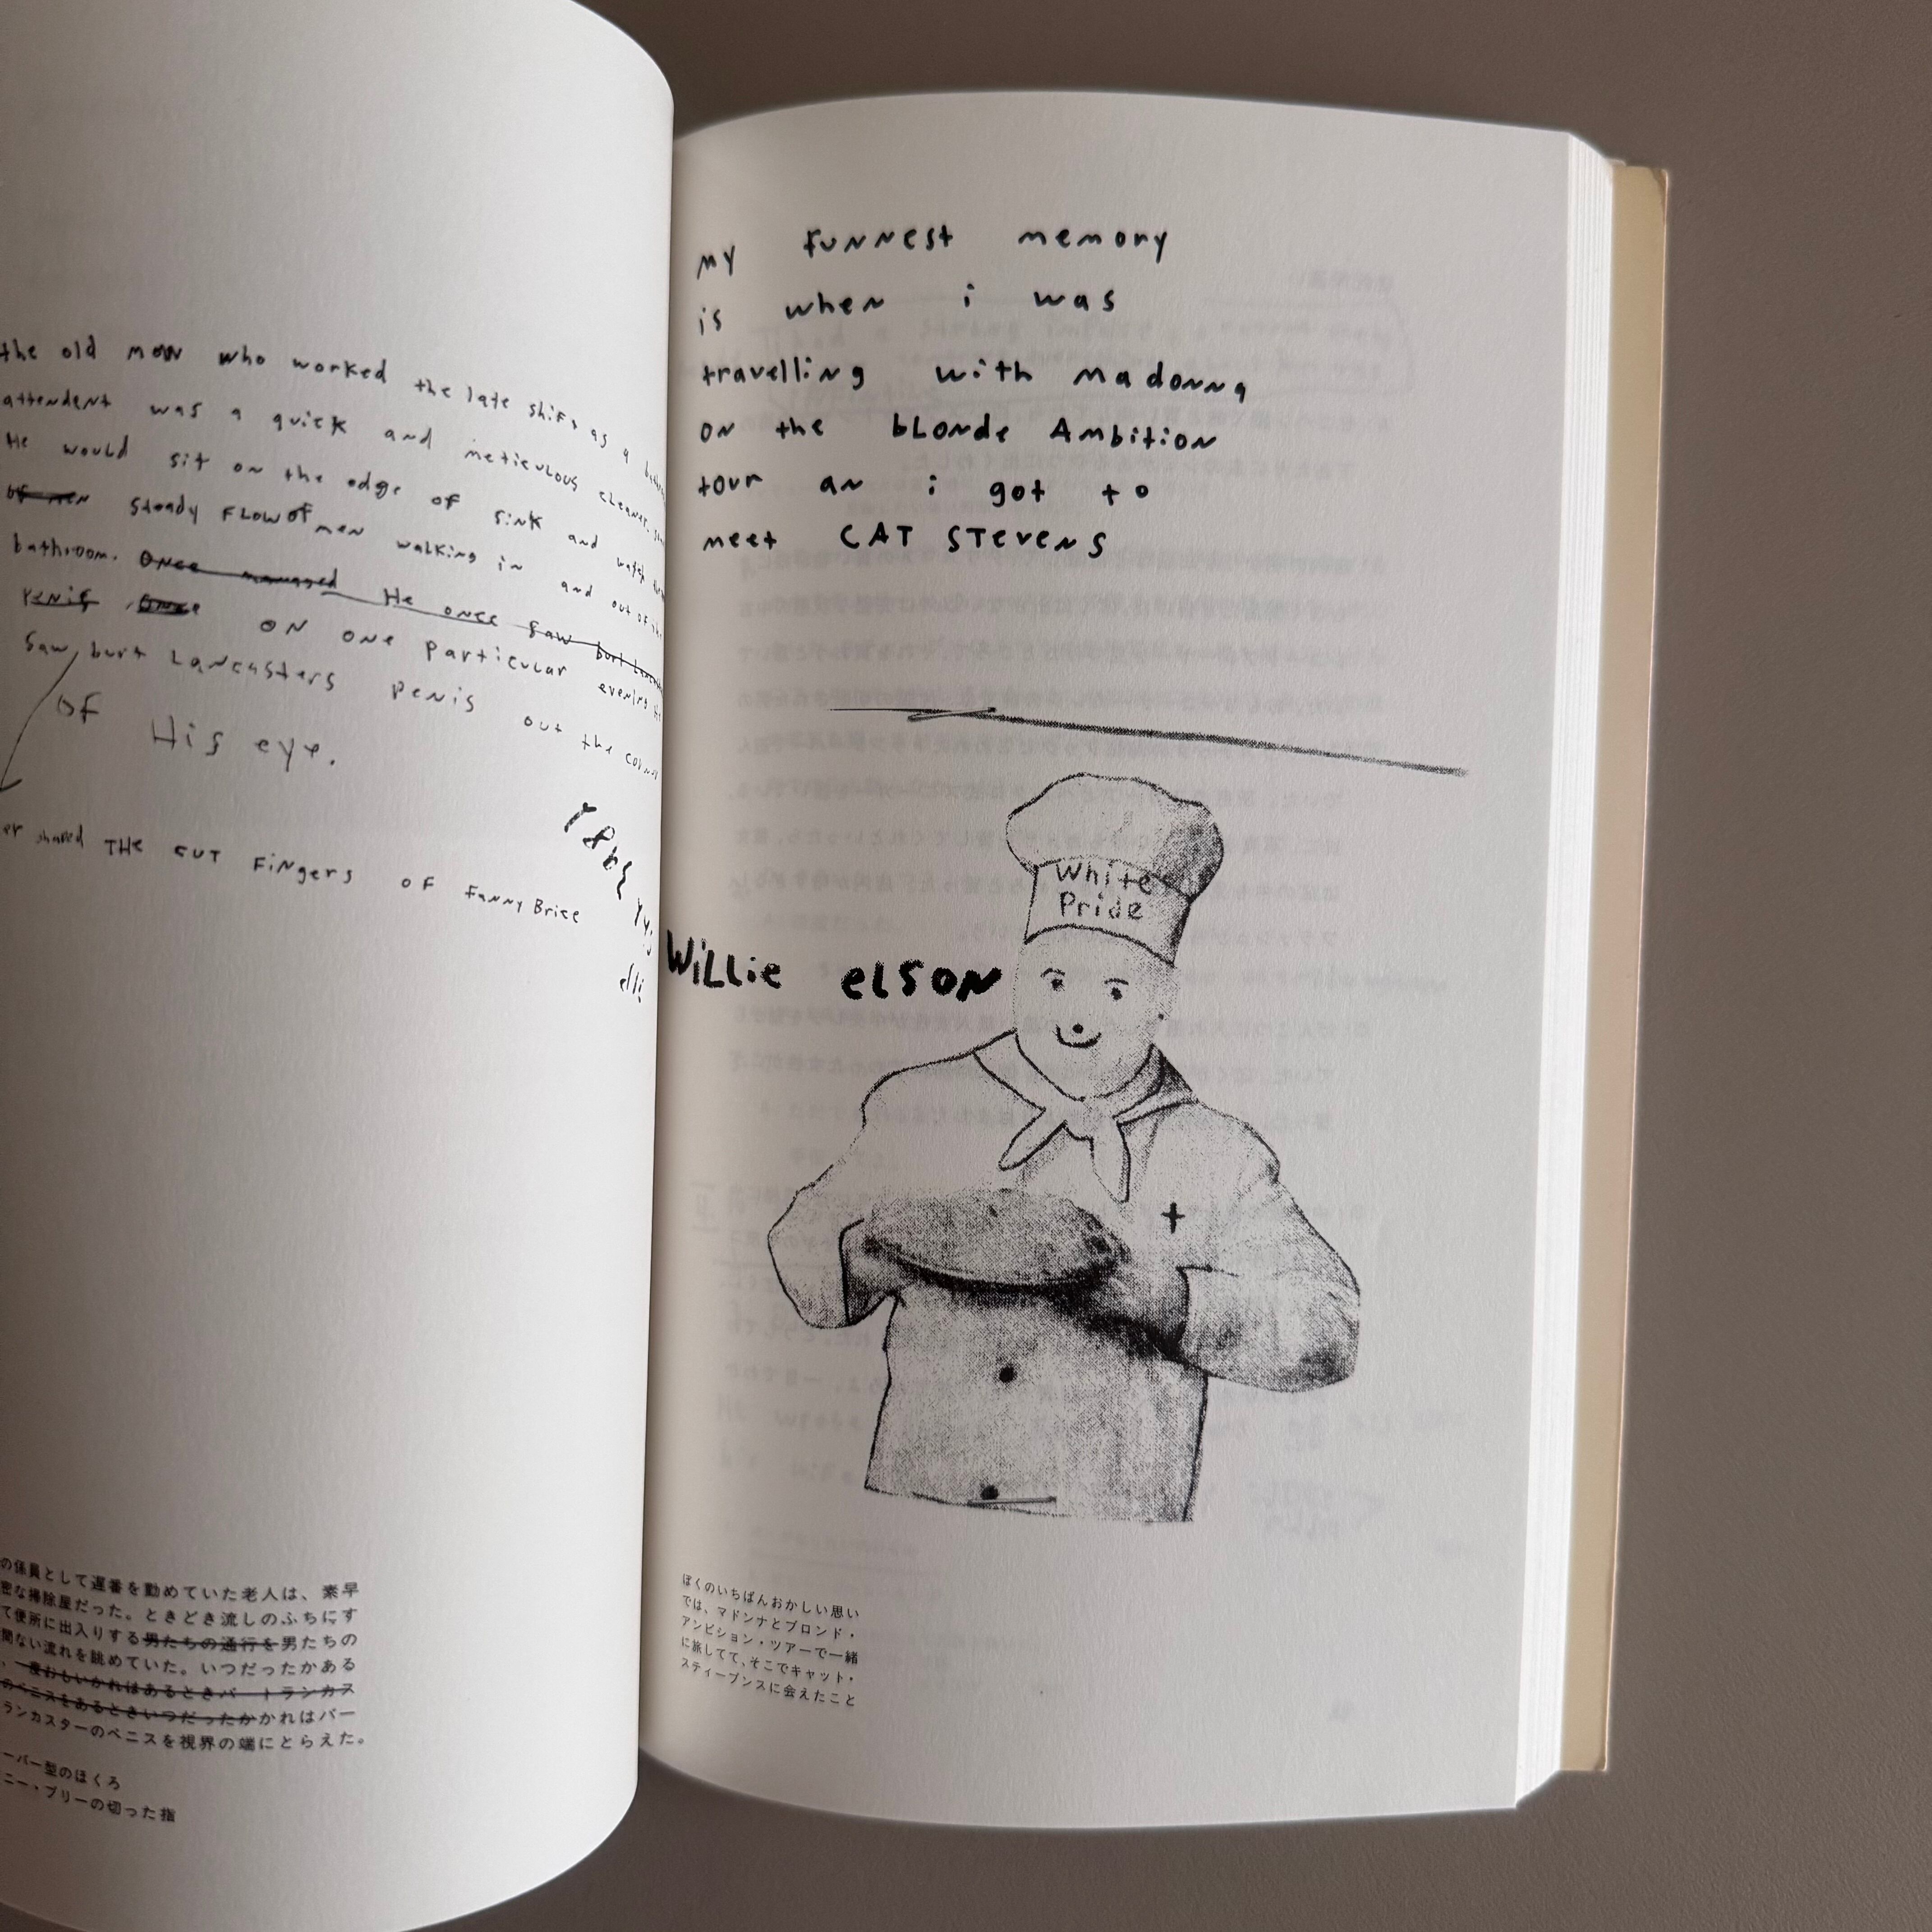 the old man who worked the late shift as a
attendent was a quick and meticulous cleaner.
He would sit on the edge of sink and watch
of men steady FLOW of men walking in and out of the
bathroom. Once managed He once saw burt
penis Once ON ONE particular evening he
saw burt Lancasters penis out the corner
of His eye.
shared THE CUT FiNgers OF FANNY Brice
my funnest memory
is when i was
travelling with madonna
on the bLonde Ambition
tour an i got to
meet CAT STeveNS
White
Pride
WiLLie eLSON
の係員として遅番を勤めていた老人は、素早
密な掃除屋だった。ときどき流しのふちにす
て便所に出入りする男たちの通行を男たちの
間ない流れを眺めていた。いつだったかある
、一度おもいかれはあるときバートランカス
のペニスをあるときいつだったかかれはバー
ランカスターのペニスを視界の端にとらえた。
ーパー型のほくろ
ニー・ブリーの切った指
ぼくのいちばんおかしい思い
では、マドンナとブロンド・
アンビション・ツアーで一緒
に旅してて、そこでキャット・
スティーブンスに会えたこと